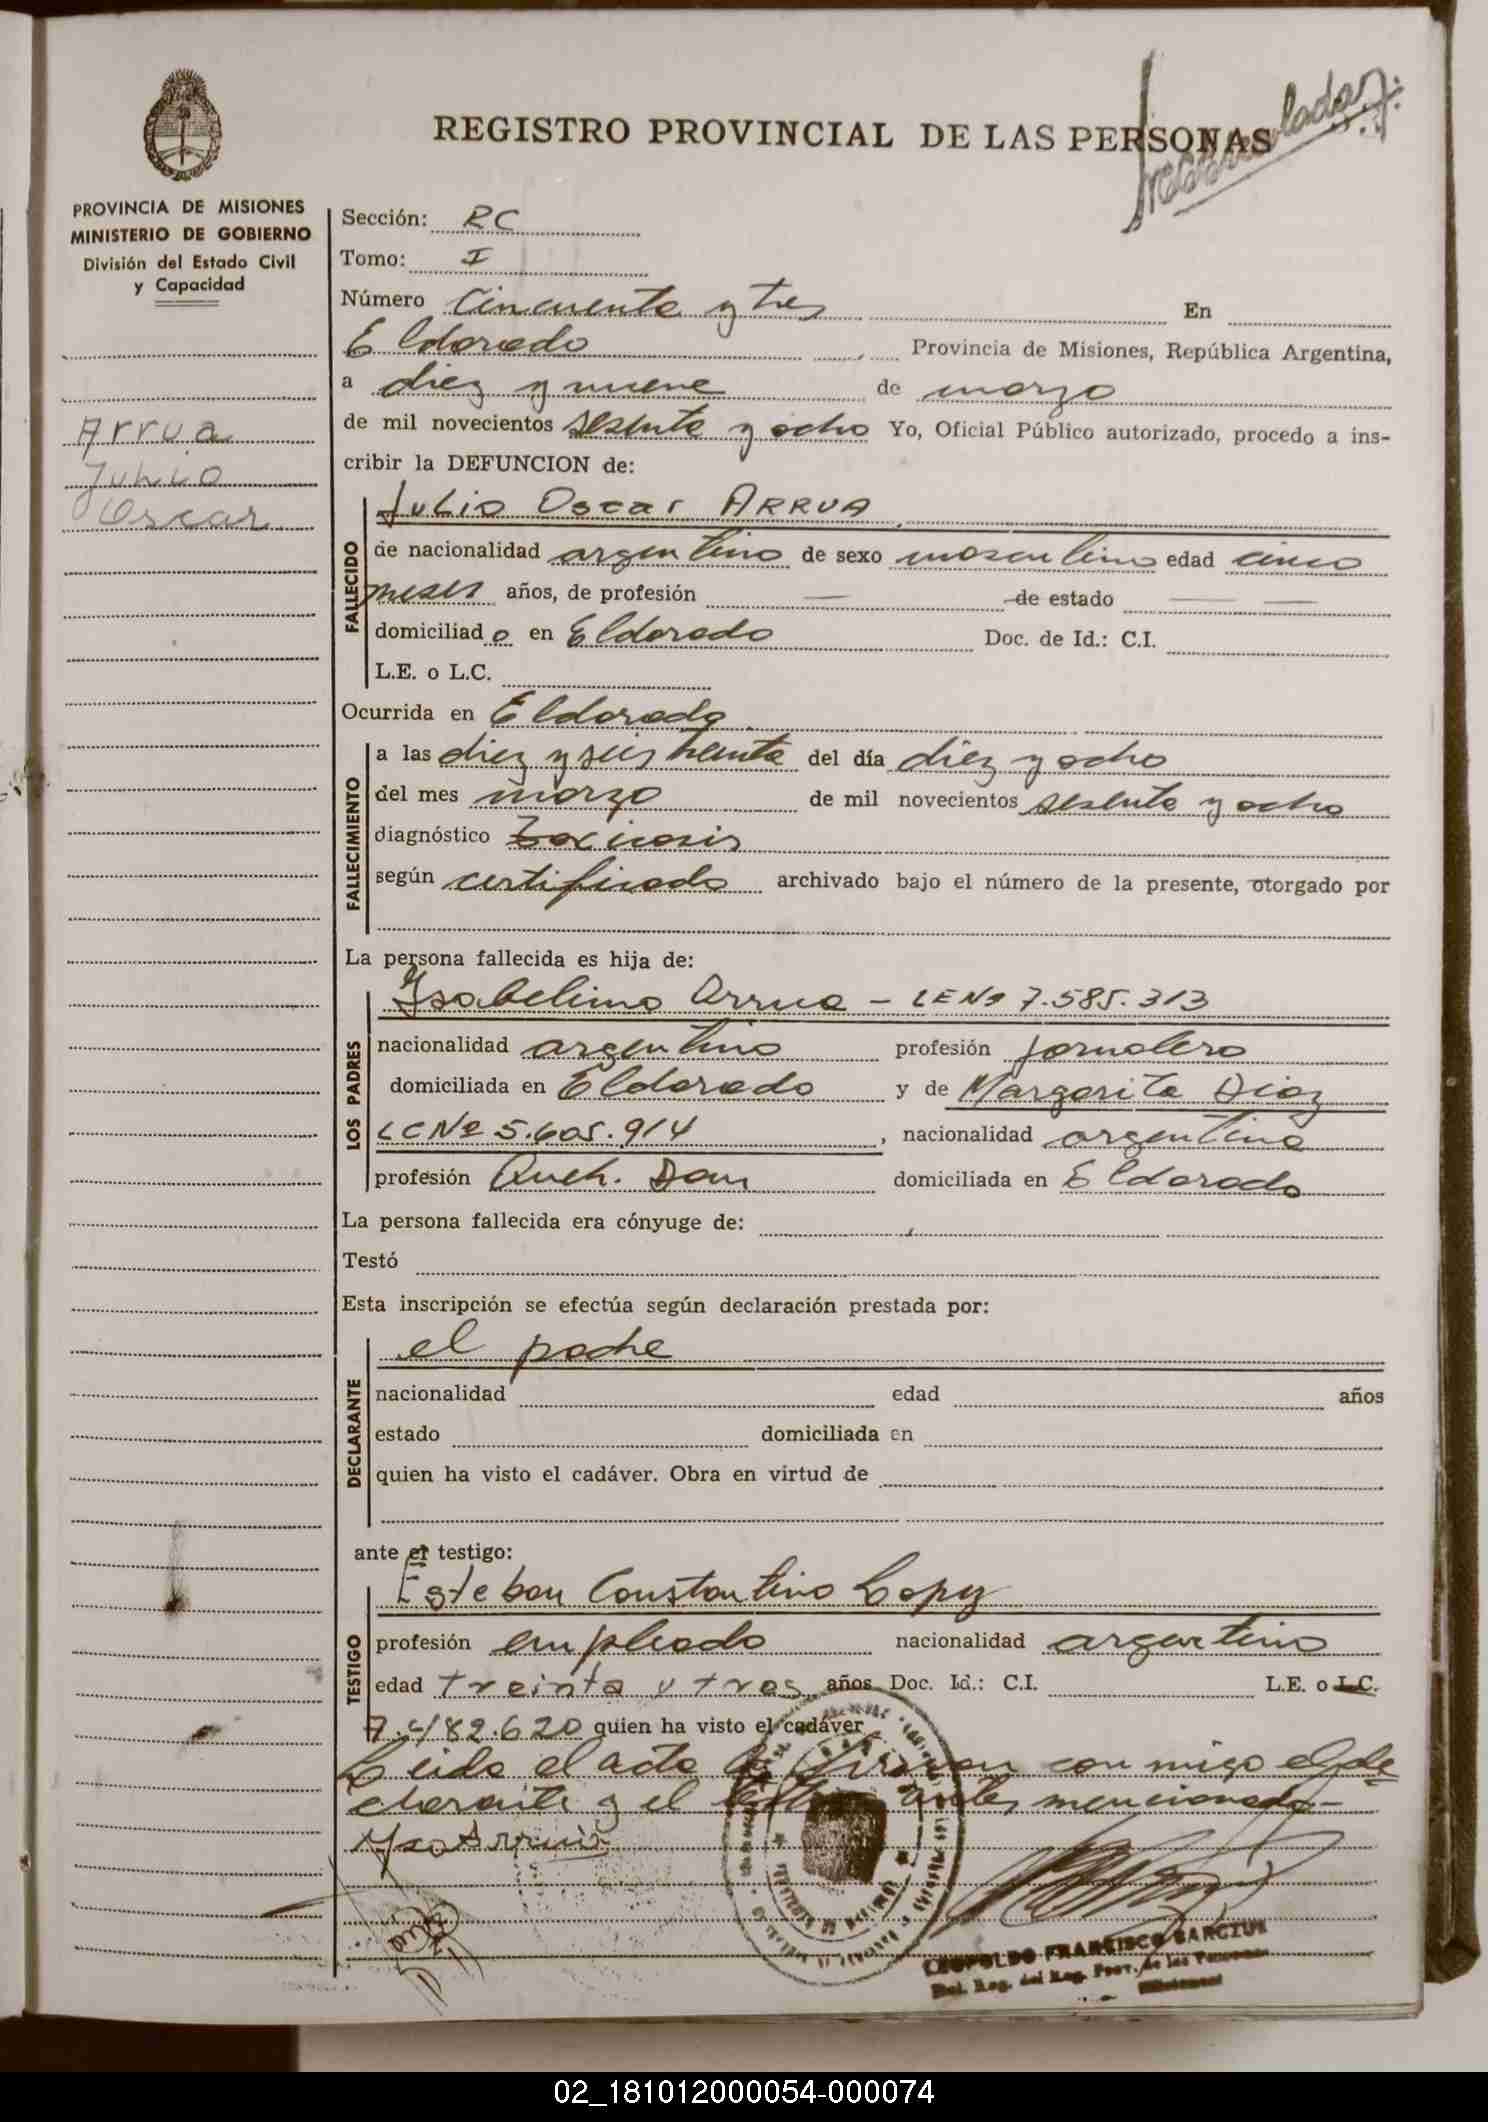 REGISTRO PROVINCIAL DE LAS PERSONAS
PROVINCIA DE MISIONES
MINISTERIO DE GOBIERNO
División del Estado Civil
y Capacidad
Arrua
Julio
Oscar
Sección: RC
Tomo: I
Número Cincuenta y tres En
Eldorado Provincia de Misiones, República Argentina,
a diez y nueve de marzo
de mil novecientos sesenta y ocho Yo, Oficial Público autorizado, procedo a ins-
cribir la DEFUNCION de:
FALLECIDO
Julio Oscar ARRUA
de nacionalidad argentino de sexo masculino edad cinco
meses años, de profesión — de estado — —
domiciliado en Eldorado Doc. de Id.: C.I.
L.E. o L.C.
Ocurrida en Eldorado
FALLECIMIENTO
a las diez y seis treinta del día diez y ocho
del mes marzo de mil novecientos sesenta y ocho
diagnóstico Toxicosis
según certificado archivado bajo el número de la presente, otorgado por
La persona fallecida es hija de:
LOS PADRES
Ysabelino Arrua - LE Nº 7.585.313
nacionalidad argentino profesión jornalero
domiciliada en Eldorado y de Margarita Diaz
LC Nº 5.605.914, nacionalidad argentina
profesión Queh. Dom domiciliada en Eldorado
La persona fallecida era cónyuge de:
Testó
Esta inscripción se efectúa según declaración prestada por:
DECLARANTE
el padre
nacionalidad edad años
estado domiciliada en
quien ha visto el cadáver. Obra en virtud de
ante el testigo:
TESTIGO
Esteban Constantino Lopez
profesión empleado nacionalidad argentino
edad treinta y tres años Doc. Id.: C.I. L.E. o L.C.
7.482.620 quien ha visto el cadáver
Leido el acta la firman con migo el de
clarante y el testigo antes mencionado-
Ysa Arrua
LEOPOLDO FRANCISCO
del Reg. Prov. de las Personas
02_181012000054-000074